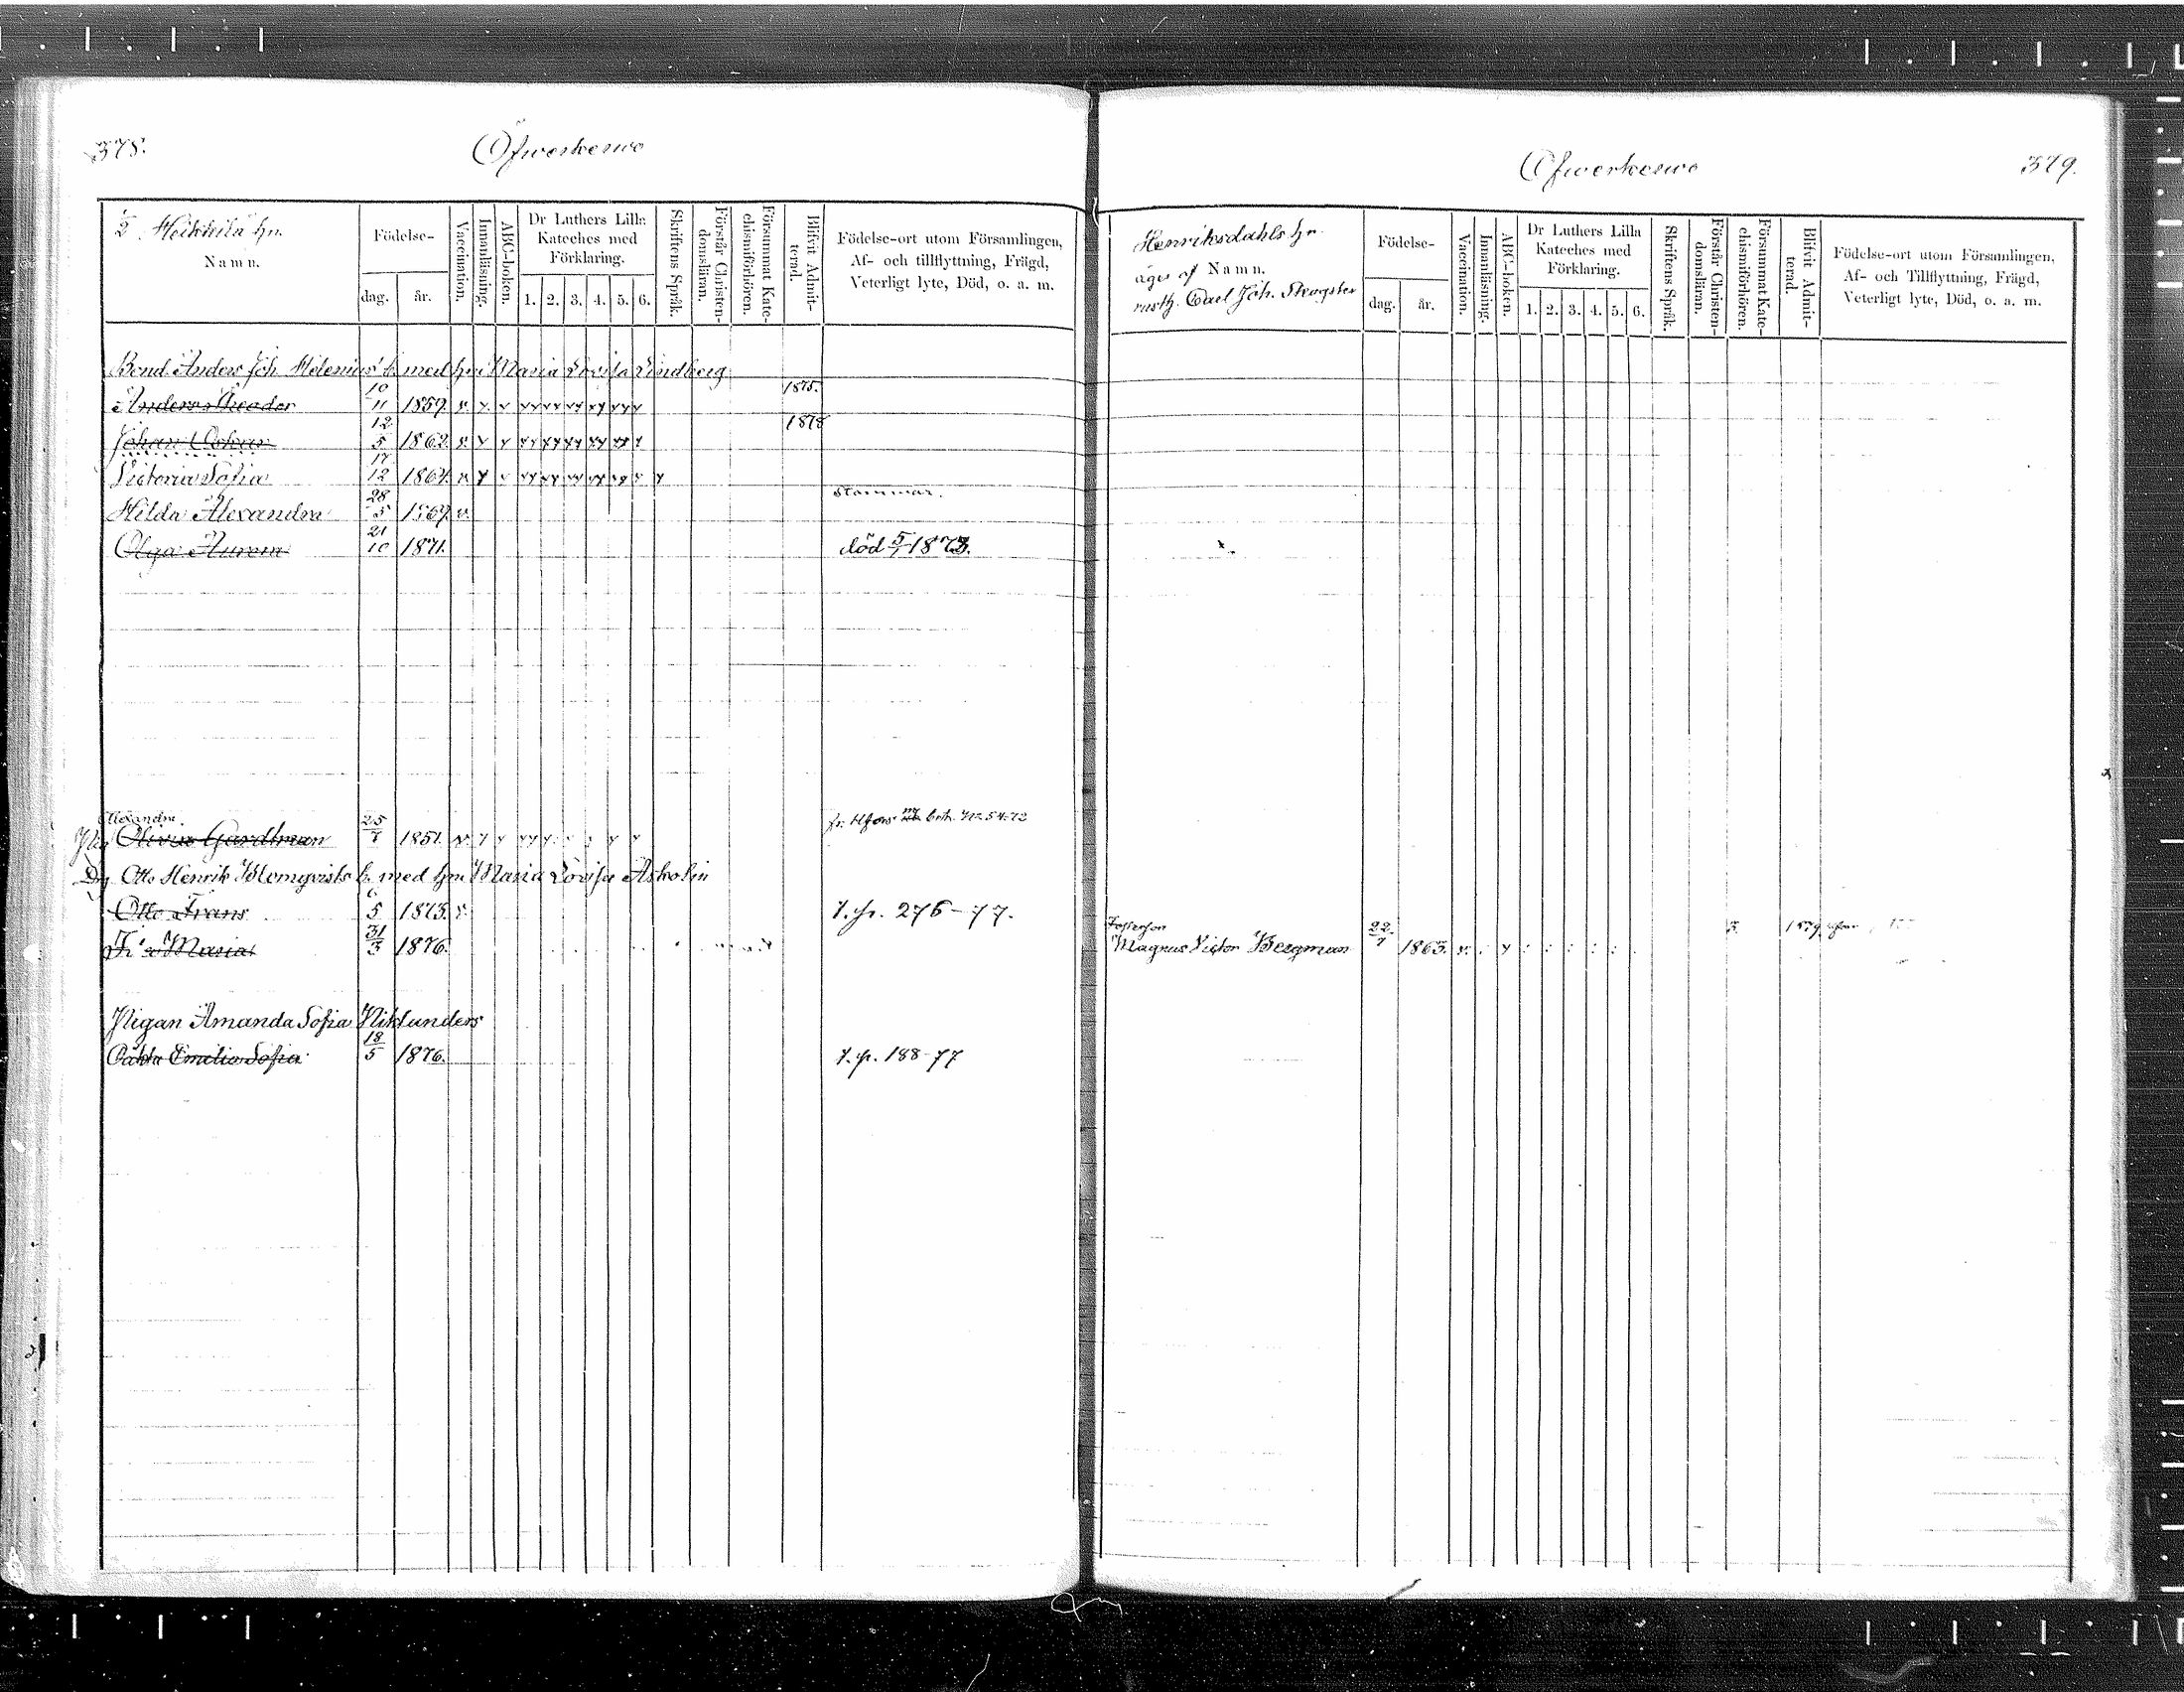 378.
Öfwerkerwo
1/2 Heikkilä hn.
Namn.
Födelse-
dag.
år.
Vaccination.
Innanläsning.
ABC-boken.
Dr Luthers Lilla
Kateches med
Förklaring.
1. 2. 3. 4. 5. 6.
Skriftens Språk.
Förstår Christen-
domsläran.
Försummat Kate-
chismiförhören.
Blifvit Admit-
terad.
Födelse-ort utom Församlingen,
Af- och tillflyttning, Frägd,
Veterligt lyte, Död, o. a. m.
Bond. Anders Joh. Helenius' b. med hu Maria Lovisa Lindberg
Anders 10/11 1859. v. 1875.
Johan Oskar 12/5 1862. v. 1878
Victoria Sofia 17/12 1864. v.
Hilda Alexandra 28/5 1869. v. stammar.
Olga Aurora 21/10 1871. död 5/1 1873.
Alexandra
Pig Olivia Gardtman 25/7 1851. v. fr. Hfors 54-72
Drg Otto Henrik Blomqvists b. med hu Maria Lovisa Askolin
Otto Frans 6/5 1873. v. 276-77.
Maria 31/3 1876.
Pigan Amanda Sofia Wiklunders
Oäkta Emelia Sofia 18/5 1876. 188-77
Öfwerkerwo
379.
Henriksdahls hn
äges af
Namn.
rusth. Carl Joh. Skogster
Födelse-
dag.
år.
Vaccination.
Innanläsning.
ABC-boken.
Dr Luthers Lilla
Kateches med
Förklaring.
1. 2. 3. 4. 5. 6.
Skriftens Språk.
Förstår Christen-
domsläran.
Försummat Kate-
chismiförhören.
Blifvit Admit-
terad.
Födelse-ort utom Församlingen,
Af- och Tillflyttning, Frägd,
Veterligt lyte, Död, o. a. m.
Fosterson
Magnus Victor Bergman 22/7 1863. v. 3. 1879